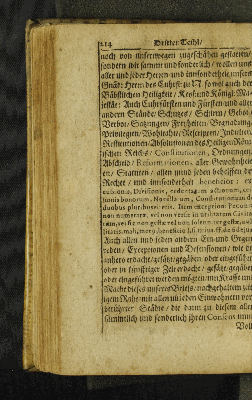 214 Dritter Theil/
noch von unsertwegen zugeschehen gestatten/
sondern wir sammt und sonderlich/ wollen uns
aller und jeder Herren und insonderheit unsers
Gnäd: Herrn des Cuhrfürst N. so wol auch der
Bäbstlichen Heiligkeit/ Keys: und Königl: Ma-
jestät: Auch Cuhrfürsten und Fürsten und aller
andern Stände/ Schutzes/ Schirm/ Gebot/
Verbot/ Satzungen/ Freyheiten/ Begnadung/
Privilegien/ Wohlthat/ Rescripten/ Indulten/
Restitutionen/ Absolutionen des Heiligen Römi-
schen Reichs/ Constitutionen, Ordnungen,
Abscheid/ Reformationen, aller Gewohnheit
en/ Statuten/ allen und jeden behelffen der
Rechte/ und insonderheit beneficior: ex-
cussionis, Divisionis, cedendarum actionum, ces-
sionis bonorum,
duobus pluribusve reis. Item exceptione Pecuniæ
non numeratæ, vel non versæ in utilitatem Civita-
tum, vel rei non gestæ vel non sic
Auch allen und jeden andern Ein- und Gegen-
reden/ Exceptionen und Defensionen/ wie die
anhero erdacht/ gesetzt/ gegeben oder eingeführet
oder in künfftiger Zeit erdacht/ gesetzt/ gegeben
oder eingeführet werden mögten/ mit Krafft und
Macht dieses unsers Briefs/
mit allen und jeden Einwohnern vor-
berührter Städte/ die dann zu diesem allen
sämmtlich und sonderlich ihren Consens und
Voll-